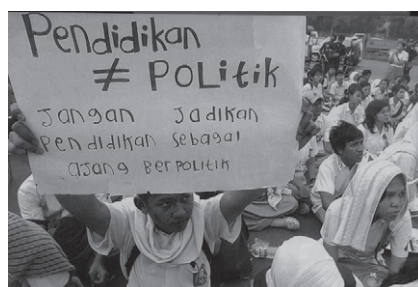 Pendidikan
≠ POLitik
Jangan Jadikan
Pendidikan Sebagai
Ajang Berpolitik